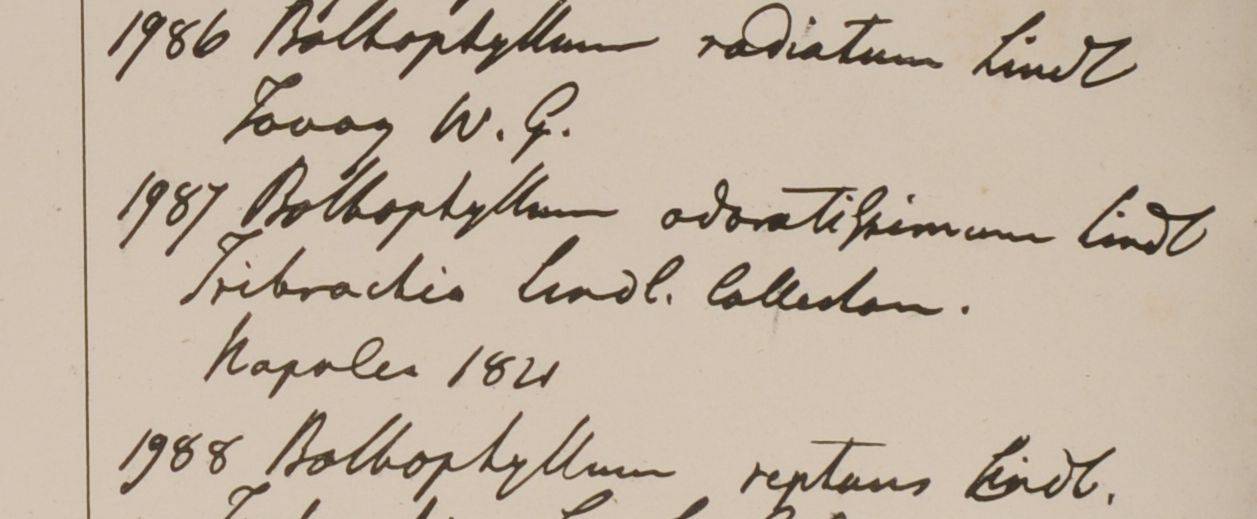 1986 Bolbophyllum radiatum Lindl
Tavoy W. G.
1987 Bolbophyllum odoratissimum Lindl
Tribrachia Lindl. Collectan.
Napalea 1821
1988 Bolbophyllum reptans Lindl.